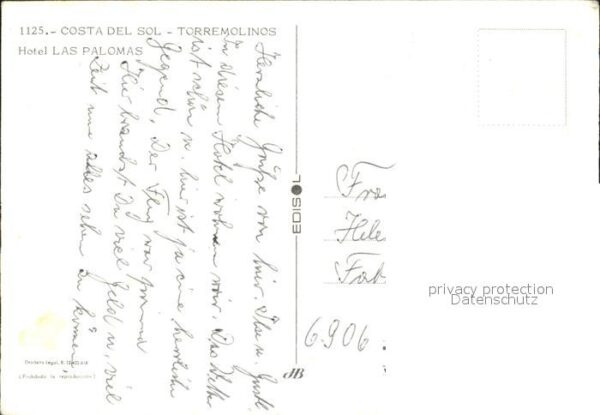 1125.- COSTA DEL SOL - TORREMOLINOS
Hotel LAS PALOMAS
Herzliche Grüße von hier. u. Gustl
In diesem Hotel wohnen wir. Das Wetter
ist schön u. hier ist ja eine herrliche
Gegend. Der Flug war prima
Hier brauchst Du viel Geld u. viel
Zeit um alles sehen zu können.
EDISOL
Fra
Hele
Fab
6906
JB
(Prohibida la reproducción)
privacy protection
Datenschutz